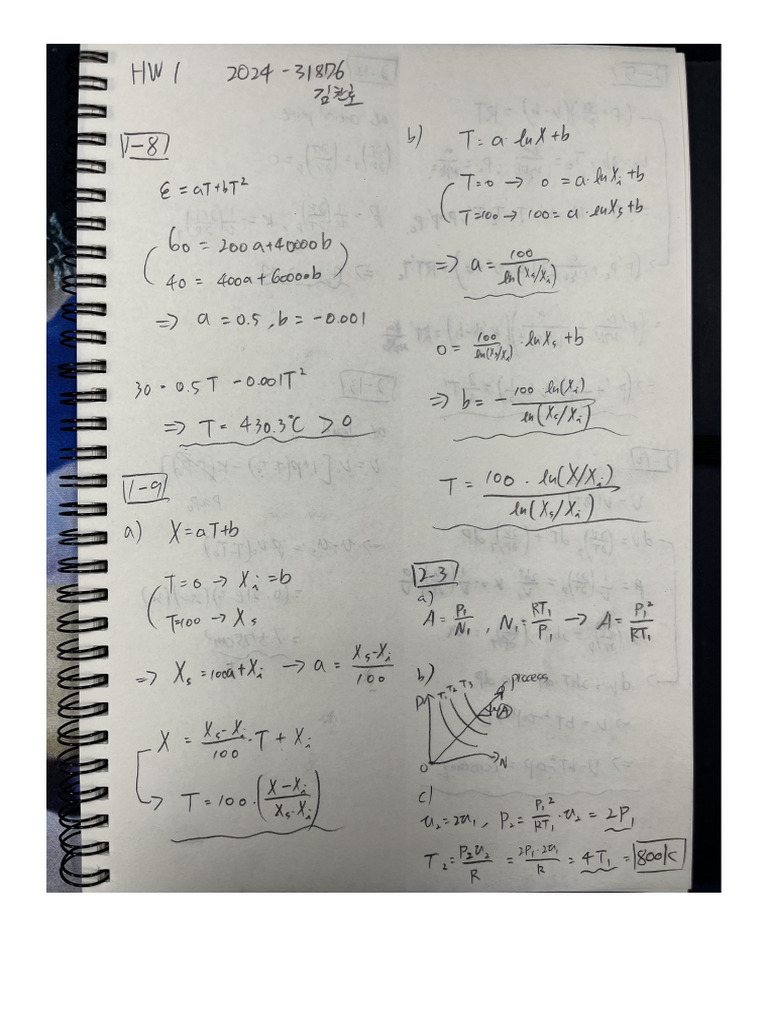 HW 1 2024-31876
김찬호
1-8
ε = aT+bT²
60 = 200a+40000b
40 = 400a+60000b
⇒ a = 0.5, b = -0.001
30 = 0.5T - 0.001T²
⇒ T = 430.3℃ > 0
1-9
a) X = aT+b
T=0 → Xᵢ = b
T=100 → Xₛ
⇒ Xₛ = 100a+Xᵢ → a = (Xₛ-Xᵢ)/100
X = (Xₛ-Xᵢ)/100 · T + Xᵢ
↳ T = 100·((X-Xᵢ)/(Xₛ-Xᵢ))
b) T = a·lnX+b
T=0 → 0 = a·lnXᵢ+b
T=100 → 100 = a·lnXₛ+b
⇒ a = 100/ln(Xₛ/Xᵢ)
0 = 100/ln(Xₛ/Xᵢ) · lnXₛ+b
⇒ b = - 100 ln(Xᵢ)/ln(Xₛ/Xᵢ)
T = 100 · ln(X/Xᵢ)/ln(Xₛ/Xᵢ)
2-3
a)
A = P₁/N₁, N₁ = RT₁/P₁ → A = P₁²/RT₁
b)
P T₁ T₂ T₃ process
A
0 N
c)
u₂=2u₁, P₂ = P₁²/RT₁ · u₂ = 2P₁
T₂ = P₂u₂/R = 2P₁·2u₁/R = 4T₁ = 800K